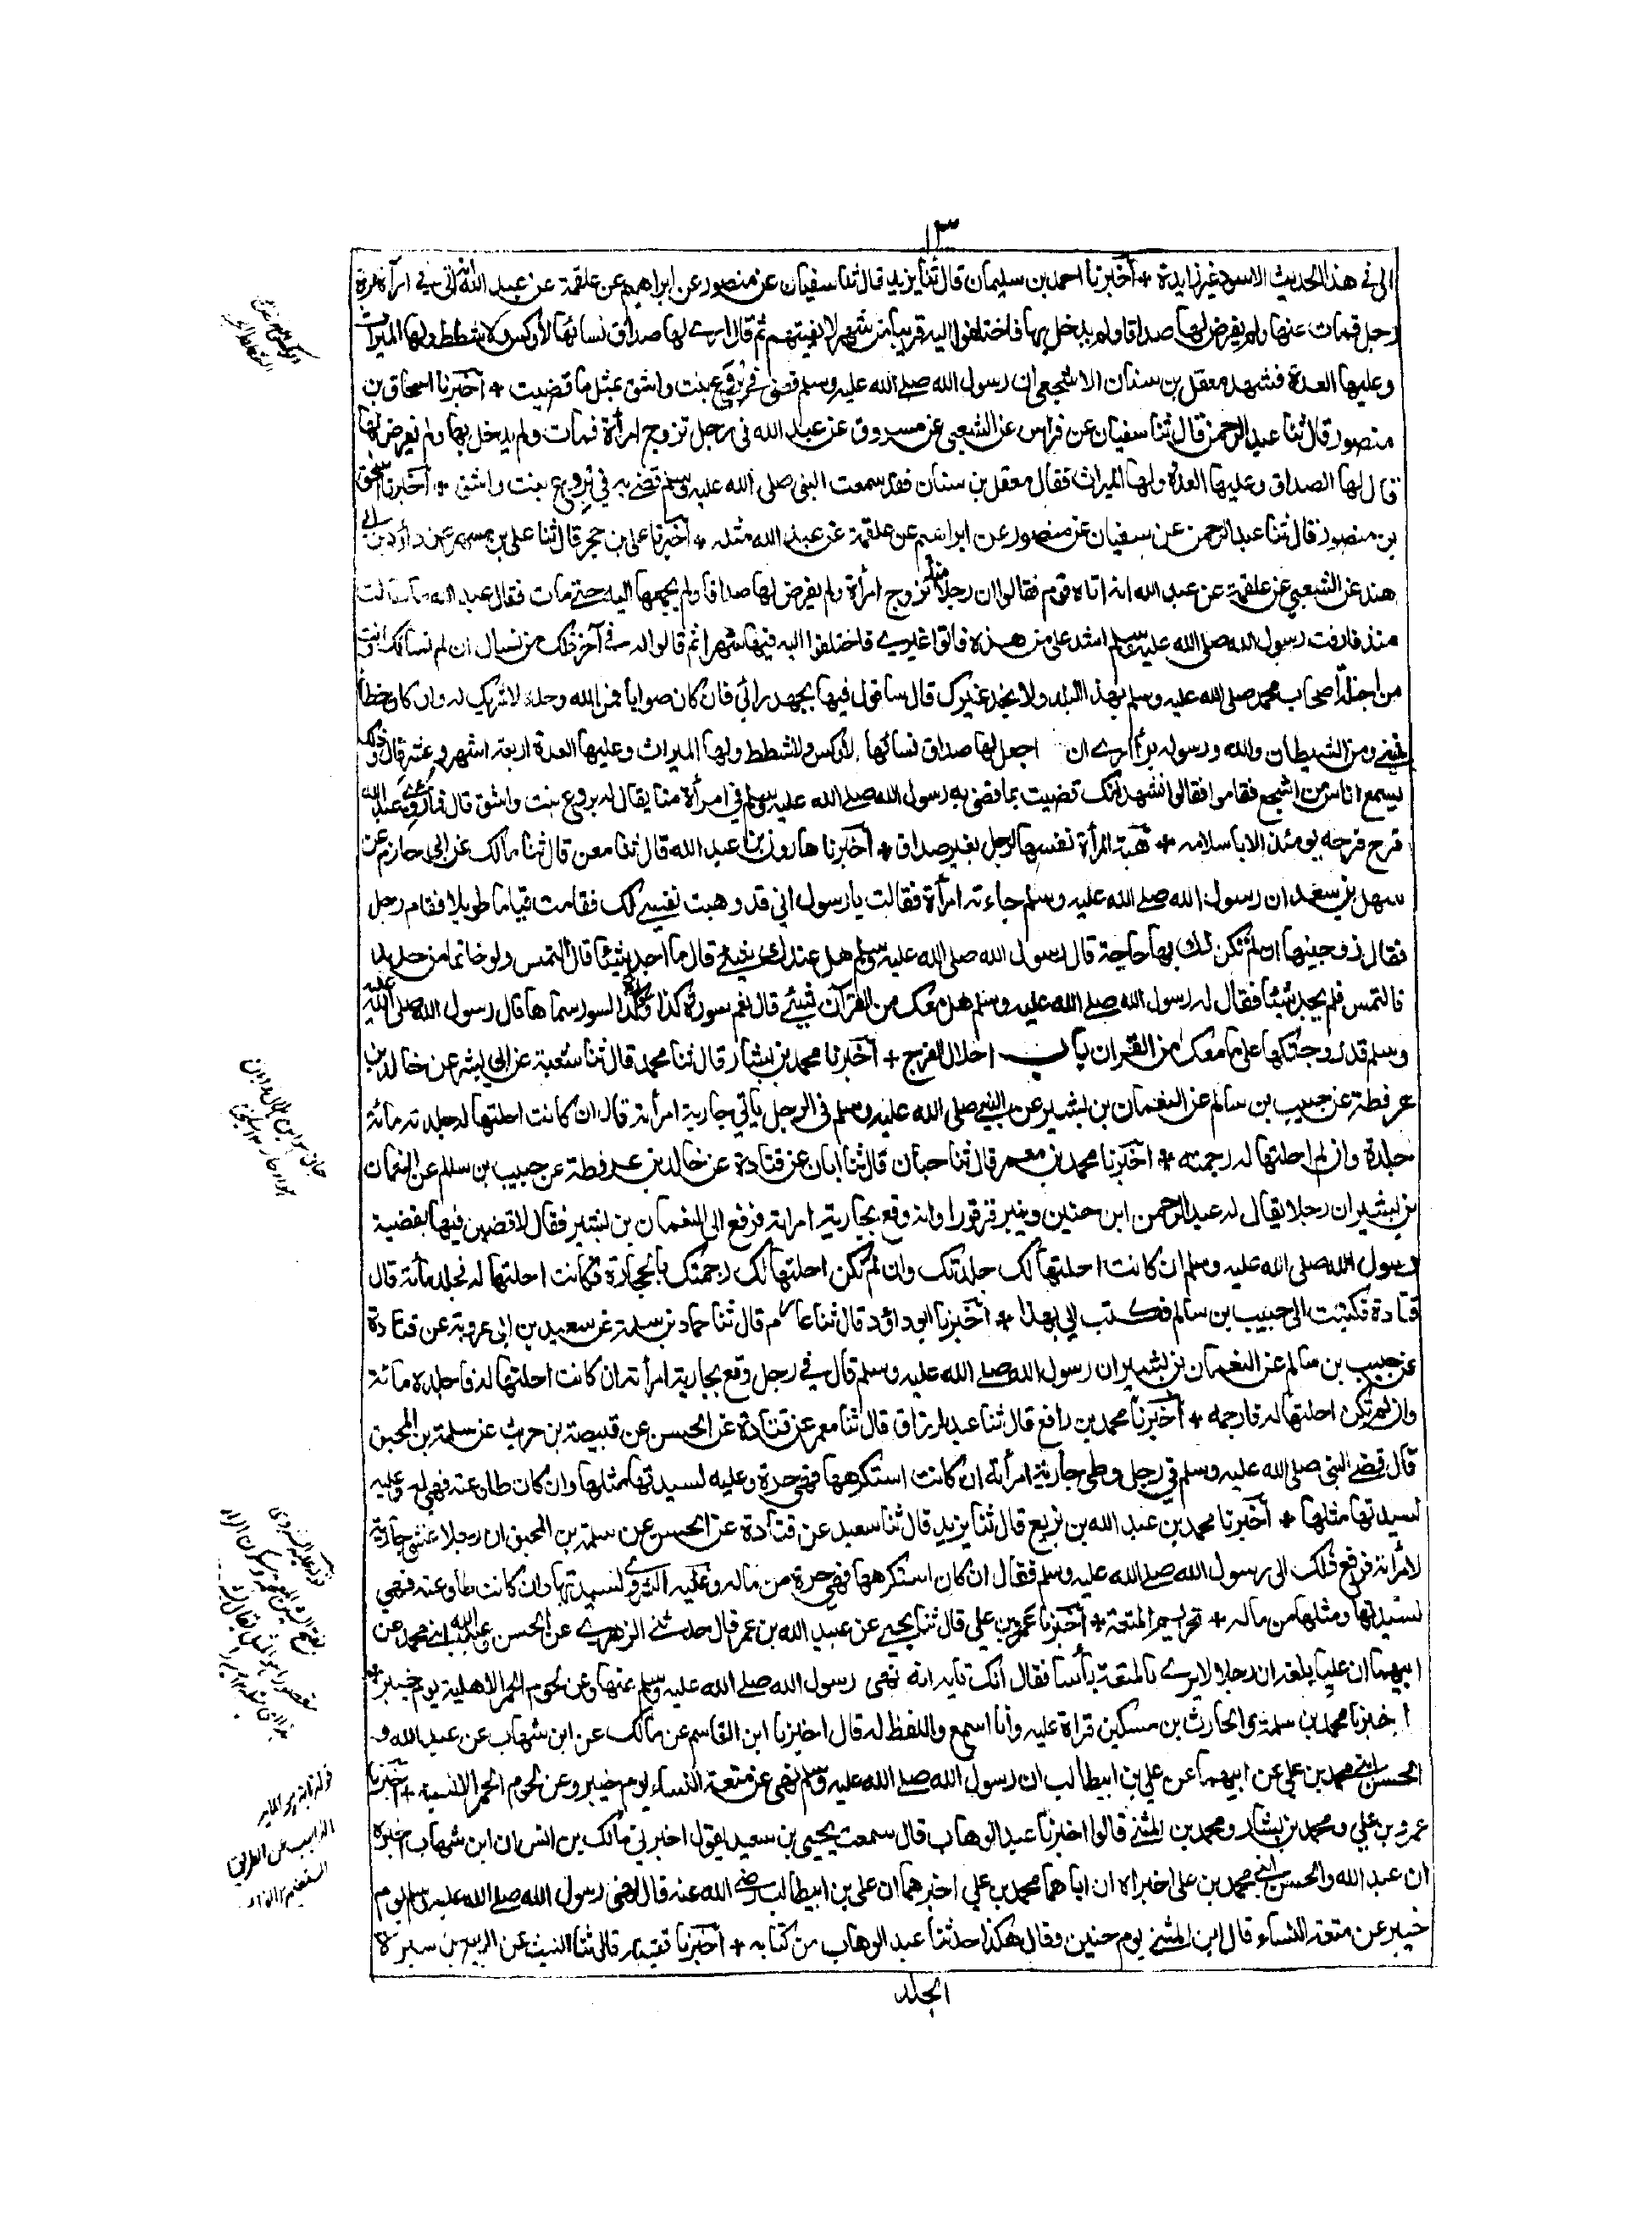 ١٣
الى في هذا الحديث الاسود غير زايدة + أخبرنا احمد بن سليمان قال ثنا يزيد قال ثنا سفيان عن منصور عن ابراهيم عن علقمة عن عبد الله انه اتى في امرأة تزوجها
رجل فمات عنها ولم يفرض لها صداقا ولم يدخل بها فاختلفوا اليه قريبا من شهر لا يفتيهم ثم قال ارى لها صداق نسائها لا وكس ولا شطط ولها الميراث
وعليها العدة فشهد معقل بن سنان الاشجعى ان رسول الله صلى الله عليه وسلم قضى في بروع بنت واشق بمثل ما قضيت + أخبرنا اسحاق بن
منصور قال ثنا عبد الرحمن قال ثنا سفيان عن فراس عن الشعبى عن مسروق عن عبد الله فى رجل تزوج امرأة فمات ولم يدخل بها ولم يفرض لها
قال لها الصداق وعليها العدة ولها الميراث فقال معقل بن سنان فقد سمعت النبى صلى الله عليه وسلم قضى به في بروع بنت واشق + أخبرنا اسحق
بن منصور قال ثنا عبد الرحمن عن سفيان عن منصور عن ابراهيم عن علقمة عن عبد الله مثله + أخبرنا على بن حجر قال ثنا على بن مسهر عن داؤد بن ابى
هند عن الشعبي عن علقمة عن عبد الله انه اتاه قوم فقالوا ان رجلا منا تزوج امرأة ولم يفرض لها صداقا ولم يجمعها اليه حتى مات فقال عبد الله ما سالت
منذ فارقت رسول الله صلى الله عليه وسلم اشد على من هذه فاتوا غيرى فاختلفوا اليه فيها شهرا ثم قالوا له في آخر ذلك من نسال ان لم نسالك وانت
من اجلة اصحاب محمد صلى الله عليه وسلم بهذا البلد ولا نجد غيرك قال ساقول فيها بجهد رائى فان كان صوابا فمن الله وحده لا شريك له وان كان خطأ
فمنى ومن الشيطان والله ورسوله برئ ارى ان اجعل لها صداق نسائها لا وكس ولا شطط ولها الميراث وعليها العدة اربعة اشهر وعشر قال وذلك
بسمع اناس من اشجع فقاموا فقالوا نشهد انك قضيت بما قضى به رسول الله صلى الله عليه وسلم في امرأة منا يقال لها بروع بنت واشق قال فما رؤى عبد الله
فرح فرحه يومئذ الا باسلامه + هبة المرأة نفسها لرجل بغير صداق + أخبرنا هارون بن عبد الله قال ثنا معن قال ثنا مالك عن ابى حازم عن
سهل بن سعد ان رسول الله صلى الله عليه وسلم جاءته امرأة فقالت يا رسول انى قد وهبت نفسى لك فقامت قياما طويلا فقام رجل
فقال زوجنيها ان لم تكن لك بها حاجة قال رسول الله صلى الله عليه وسلم هل عندك شئ قال ما اجد شيئا قال التمس ولو خاتما من حديد
فالتمس فلم يجد شيئا فقال له رسول الله صلى الله عليه وسلم هل معك من القرآن شئ قال نعم سورة كذا وسورة كذا لسور سماها قال رسول الله صلى الله عليه
وسلم قد زوجتكها على ما معك من القران باب احلال الفرج + أخبرنا محمد بن بشار قال ثنا محمد قال ثنا شعبة عن ابى بشر عن خالد بن
عرفطة عن حبيب بن سالم عن النعمان بن بشير عن النبى صلى الله عليه وسلم فى الرجل ياتى جارية امرأته قال ان كانت احلتها له جلدته مائة
جلدة وان لم احلتها له رجمته + أخبرنا محمد بن معمر قال ثنا حبان قال ثنا ابان عن قتادة عن خالد بن عرفطة عن حبيب بن سالم عن النعمان
بن بشير ان رجلا يقال له عبد الرحمن ابن حنين وينبز قرقورا وانه وقع بجارية امراته فرفع الى النعمان بن بشير فقال لاقضين فيها بقضية
رسول الله صلى الله عليه وسلم ان كانت احلتها لك جلدتك وان لم تكن احلتها لك رجمتك بالحجارة فكانت احلتها له فجلد مائة قال
قتادة فكتبت الى حبيب بن سالم فكتب الى بهذا + أخبرنا ابو داؤد قال ثنا عارم قال ثنا حماد بن سلمة عن سعيد بن ابى عروبة عن قتادة
عن حبيب بن سالم عن النعمان بن بشير ان رسول الله صلى الله عليه وسلم قال في رجل وقع بجارية امرأته ان كانت احلتها له فاجلده مائة
وان لم تكن احلتها له فارجمه + أخبرنا محمد بن رافع قال ثنا عبد الرزاق قال ثنا معمر عن قتادة عن الحسن عن قبيصة بن حريث عن سلمة بن المحبق
قال قضى النبى صلى الله عليه وسلم في رجل وطى جارية امرأته ان كانت استكرهها فهى حرة وعليه لسيدتها مثلها وان كان طاوعته فهى له وعليه
لسيدتها مثلها + أخبرنا محمد بن عبد الله بن بزيع قال ثنا يزيد قال ثنا سعيد عن قتادة عن الحسن عن سلمة بن المحبق ان رجلا غشى جارية
لامرأته فرفع ذلك الى رسول الله صلى الله عليه وسلم فقال ان كان استكرهها فهى حرة من ماله وعليه الشروى لسيدتها وان كانت طاوعته فهى
لسيدتها ومثلها من ماله + تحريم المتعة + أخبرنا عمرو بن علي قال ثنا يحيى عن عبيد الله بن عمر قال حدثنى الزهرى عن الحسن وعبد الله ابنى محمد عن
ابيهما ان عليا بلغه ان رجلا لا يرى بالمتعة بأسا فقال انك تايه انه نهى رسول الله صلى الله عليه وسلم عنها وعن لحوم الحمر الاهلية يوم خيبر +
اخبرنا محمد بن سلمة والحارث بن مسكين قراة عليه وأنا اسمع واللفظ له قال اخبرنا ابن القاسم عن مالك عن ابن شهاب عن عبد الله و
الحسن ابنى محمد بن على عن ابيهما عن على بن ابيطالب ان رسول الله صلى الله عليه وسلم نهى عن متعة النساء يوم خيبر وعن لحوم الحمر الانسية + أخبرنا
عمرو بن على ومحمد بن بشار ومحمد بن المثنى قالوا اخبرنا عبد الوهاب قال سمعت يحيى بن سعيد يقول اخبرنى مالك بن انس ان ابن شهاب اخبره
ان عبد الله والحسن ابنى محمد بن على اخبراه ان اباهما محمد بن على اخبرهما ان على بن ابيطالب رضى الله عنه قال نهى رسول الله صلى الله عليه وسلم يوم
خيبر عن متعة النساء قال ابن المثنى يوم حنين وقال هكذا حدثنا عبد الوهاب من كتابه + أخبرنا قتيبة قال ثنا الليث عن الربيع بن سبرة
الجلد